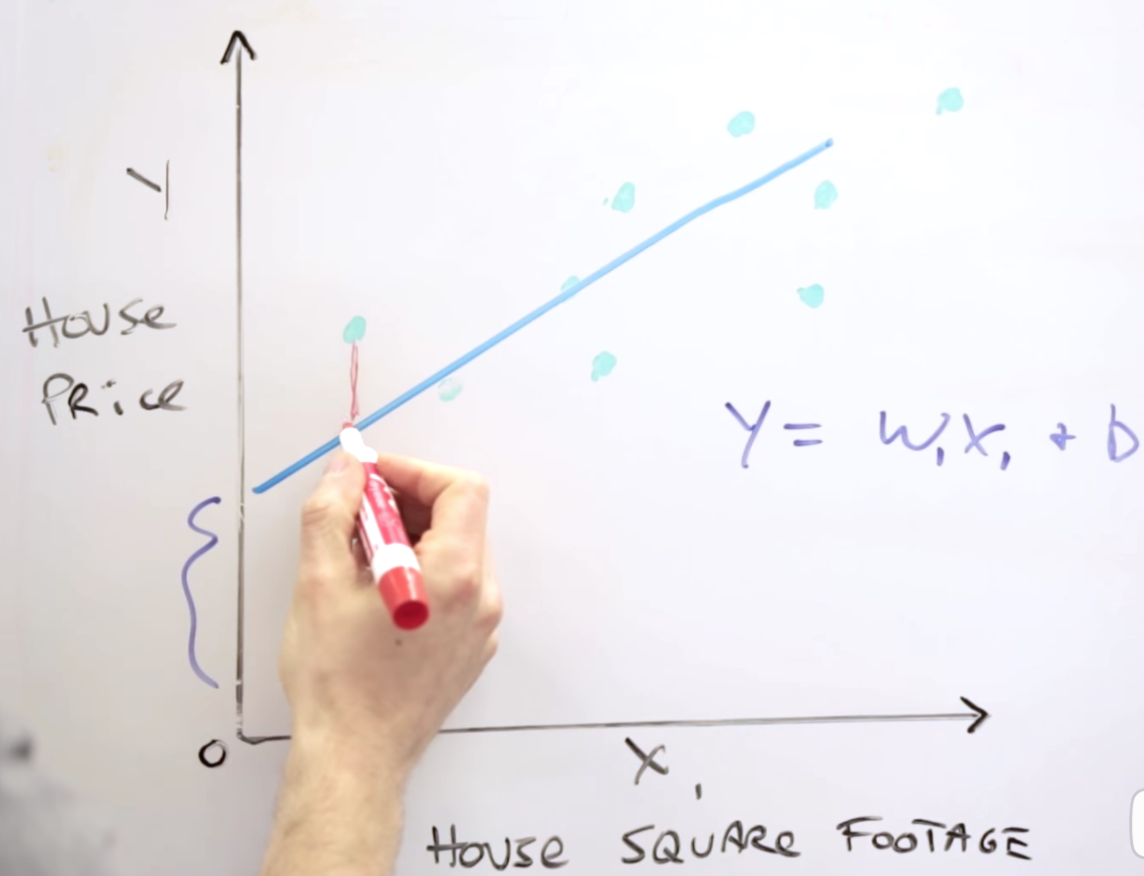 Y
House
Price
Y = W₁X₁ + b
O
X₁
House Square Footage